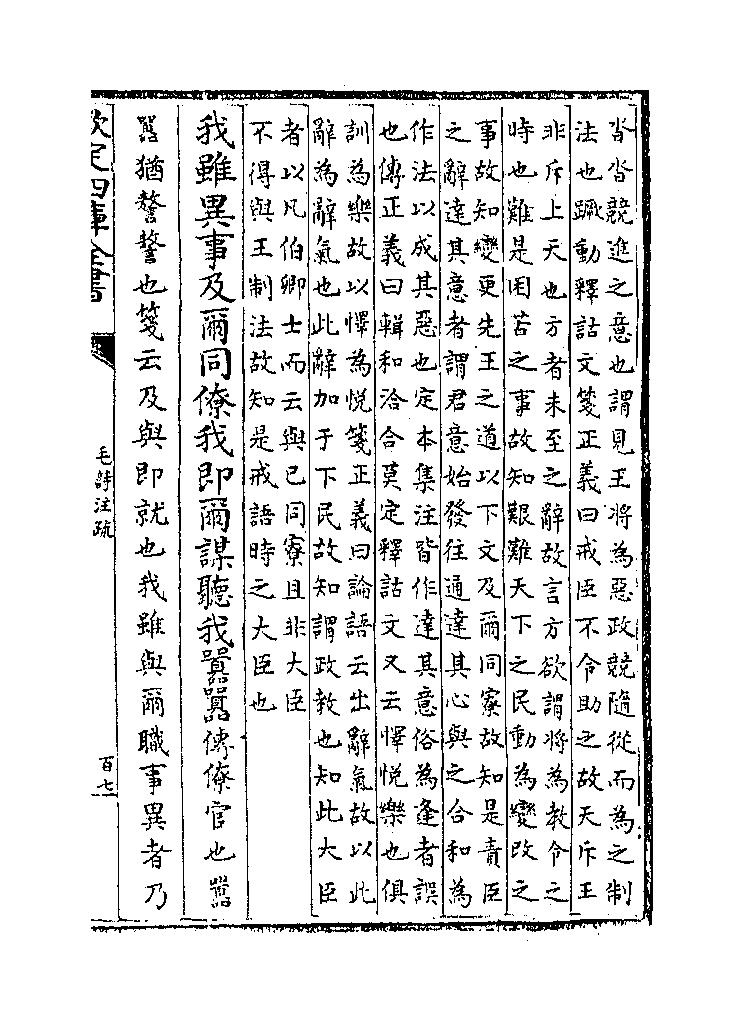 沓沓競進之意也謂見王將為惡政競隨從而為之制
法也蹶動釋詁文箋正義曰戒臣不令助之故天斥王
非斥上天也方者未至之辭故言方欲謂將為教令之
時也難是困苦之事故知艱難天下之民動為變改之
事故知變更先王之道以下文及爾同寮故知是責臣
之辭達其意者謂君意始發往通達其心與之合和為
作法以成其惡也定本集注皆作達其意俗為逢者誤
也傳正義曰輯和洽合莫定釋詁文又云懌悅樂也俱
訓為樂故以懌為悅箋正義曰論語云出辭氣故以此
辭為辭氣也此辭加于下民故知謂政教也知此大臣
者以凡伯卿士而云與已同寮且非大臣
不得與王制法故知是戒語時之大臣也
我雖異事及爾同僚我即爾謀聽我囂囂傳僚官也囂
囂猶謷謷也箋云及與即就也我雖與爾職事異者乃
欽定四庫全書
毛詩注疏
百七